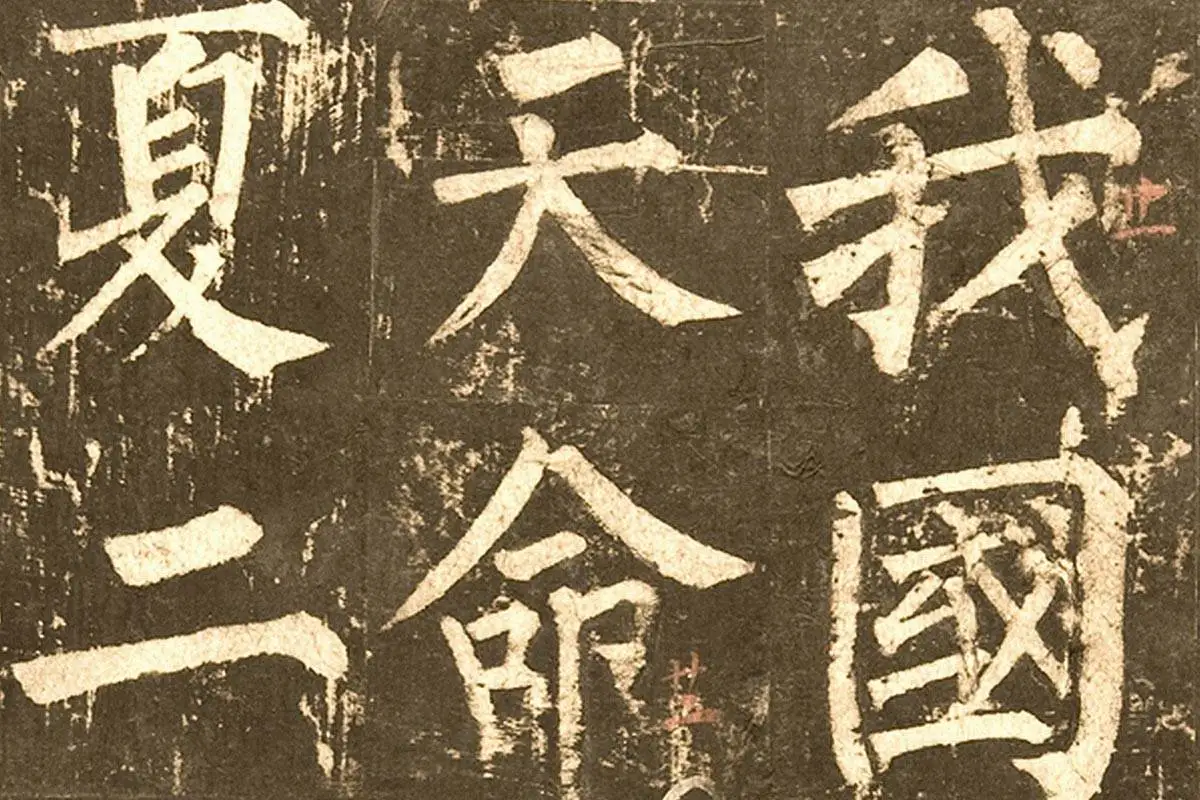 我國
天命
夏二